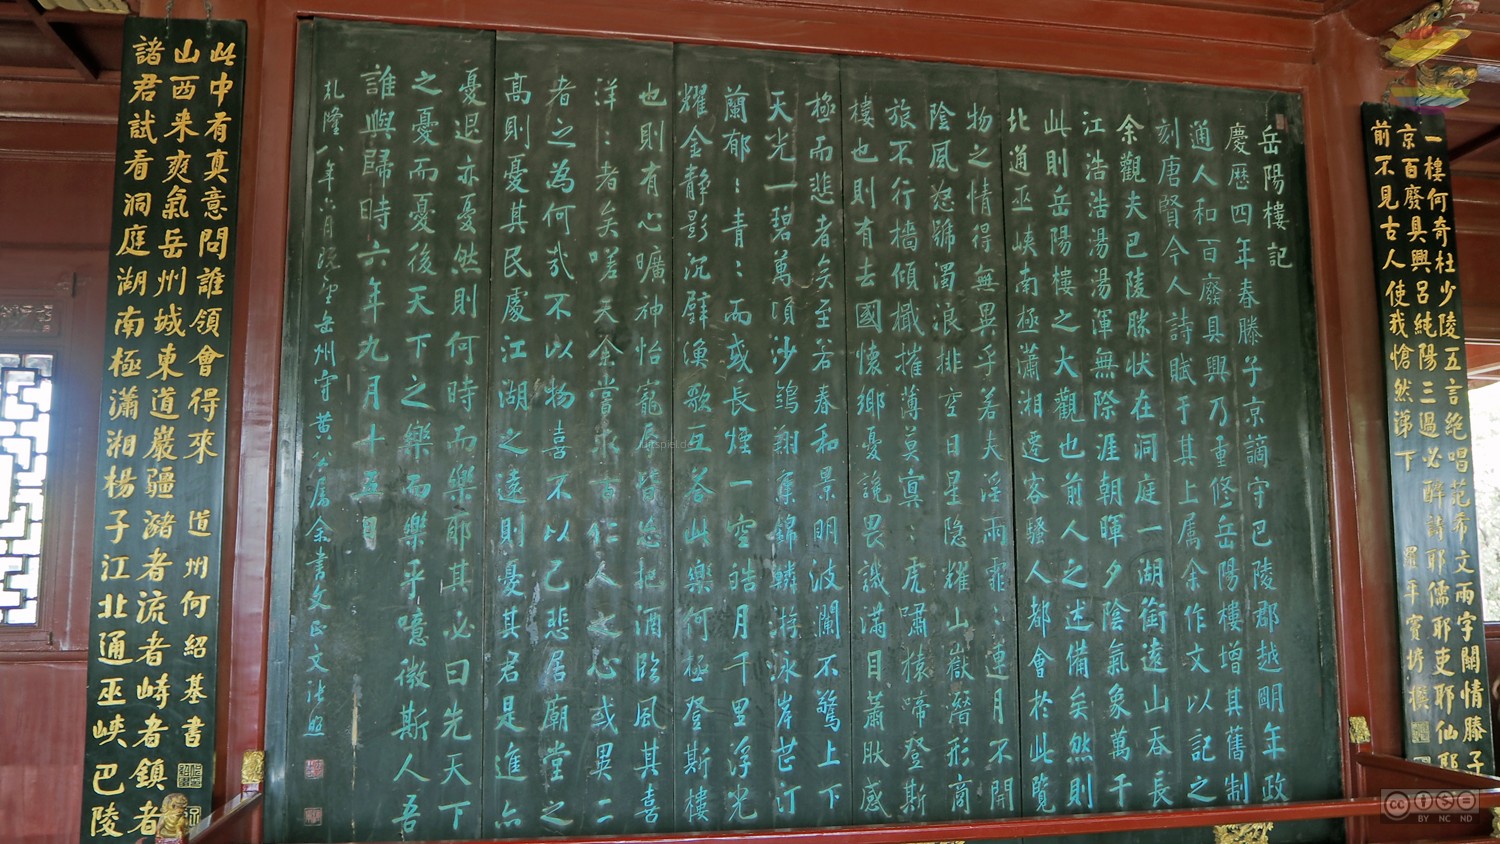 一樓何奇杜少陵五言絕唱范希文兩字關情滕子
京百廢具興呂純陽三過必醉詩耶儒耶吏耶仙耶
前不見古人使我愴然涕下
羅平竇垿撰
岳陽樓記
慶歷四年春滕子京謫守巴陵郡越明年政
通人和百廢具興乃重修岳陽樓增其舊制
刻唐賢今人詩賦于其上屬余作文以記之
余觀夫巴陵勝狀在洞庭一湖銜遠山吞長
江浩浩湯湯渾無際涯朝暉夕陰氣象萬千
此則岳陽樓之大觀也前人之述備矣然則
北通巫峽南極瀟湘遷客騷人都會於此覽
物之情得無異乎若夫淫雨霏：連月不開
陰風怒號濁浪排空日星隱耀山嶽潛形商
旅不行檣傾檝摧薄莫冥：虎嘯猿啼登斯
樓也則有去國懷鄉憂讒畏譏滿目蕭然感
極而悲者矣至若春和景明波瀾不驚上下
天光一碧萬頃沙鷗翔集錦鱗游泳岸芷汀
蘭郁：青：而或長煙一空皓月千里浮光
耀金靜影沉璧漁歌互答此樂何極登斯樓
也則有心曠神怡寵辱皆忘把酒臨風其喜
洋：者矣嗟夫余嘗求古仁人之心或異二
者之為何哉不以物喜不以己悲居廟堂之
高則憂其民處江湖之遠則憂其君是進亦
憂退亦憂然則何時而樂耶其必曰先天下
之憂而憂後天下之樂而樂乎噫微斯人吾
誰與歸時六年九月十五日
乾隆八年六月既望岳州守黃公屬余書文張照
此中有真意問誰領會得來
道州何紹基書
山西來爽氣岳州城東道巖疆瀦者流者峙者鎮者
諸君試看洞庭湖南極瀟湘楊子江北通巫峽巴陵
CC BY NC ND